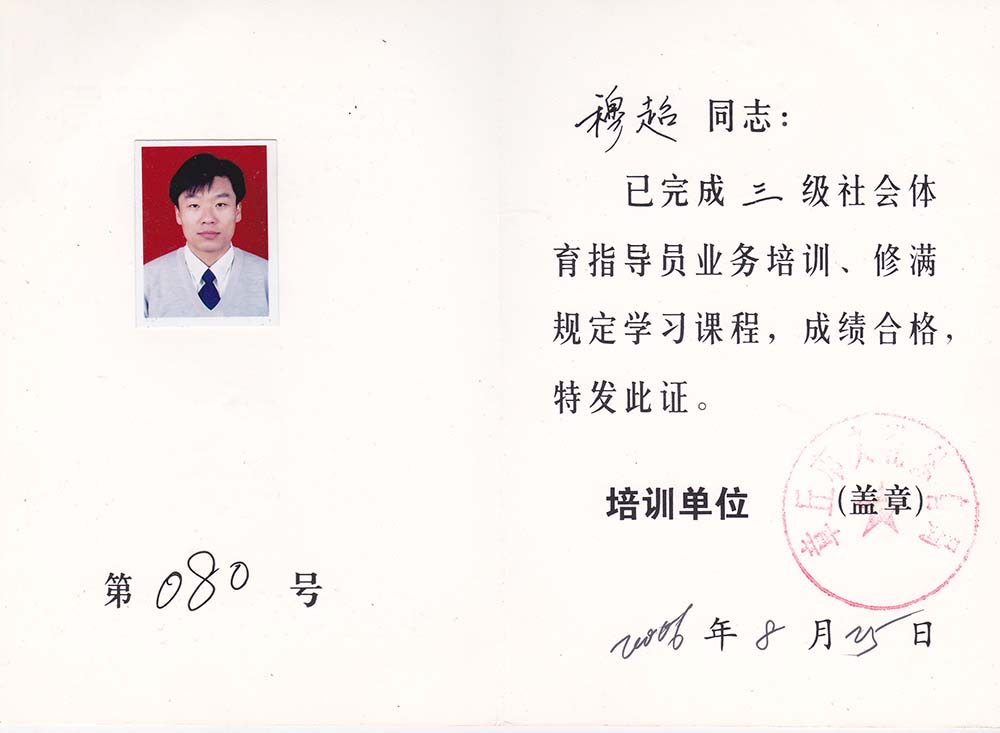 第 080 号
穆超 同志：
已完成 三 级社会体
育指导员业务培训、修满
规定学习课程，成绩合格，
特发此证。
培训单位 （盖章）
2006 年 8 月 25 日